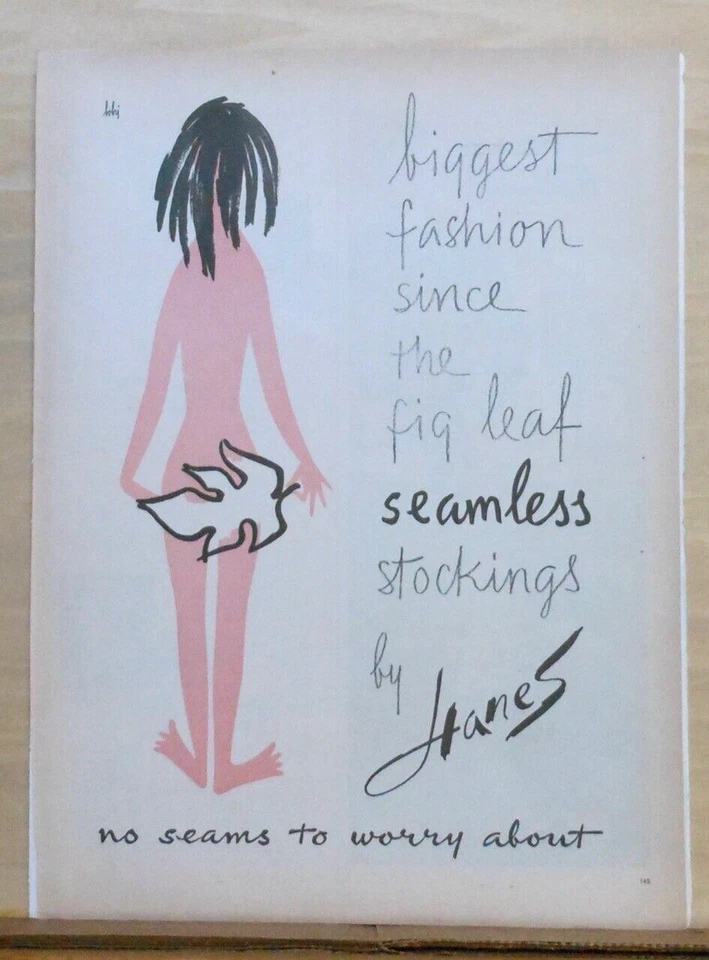 bobi
biggest
fashion
since
the
fig leaf
seamless
stockings
by Hanes
no seams to worry about